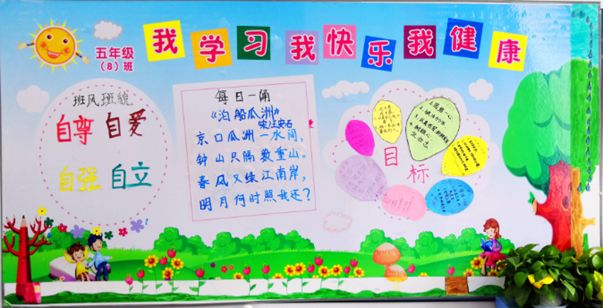 我学习我快乐我健康
五年级
（8）班
班风班貌
自尊 自爱
自强 自立
每日一诵
《泊船瓜洲》
宋王安石
京口瓜洲一水间,
钟山只隔数重山。
春风又绿江南岸,
明月何时照我还?
目标